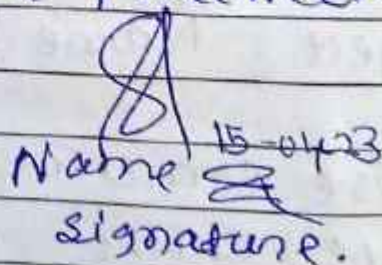 15-04-23
Name &
Signature.